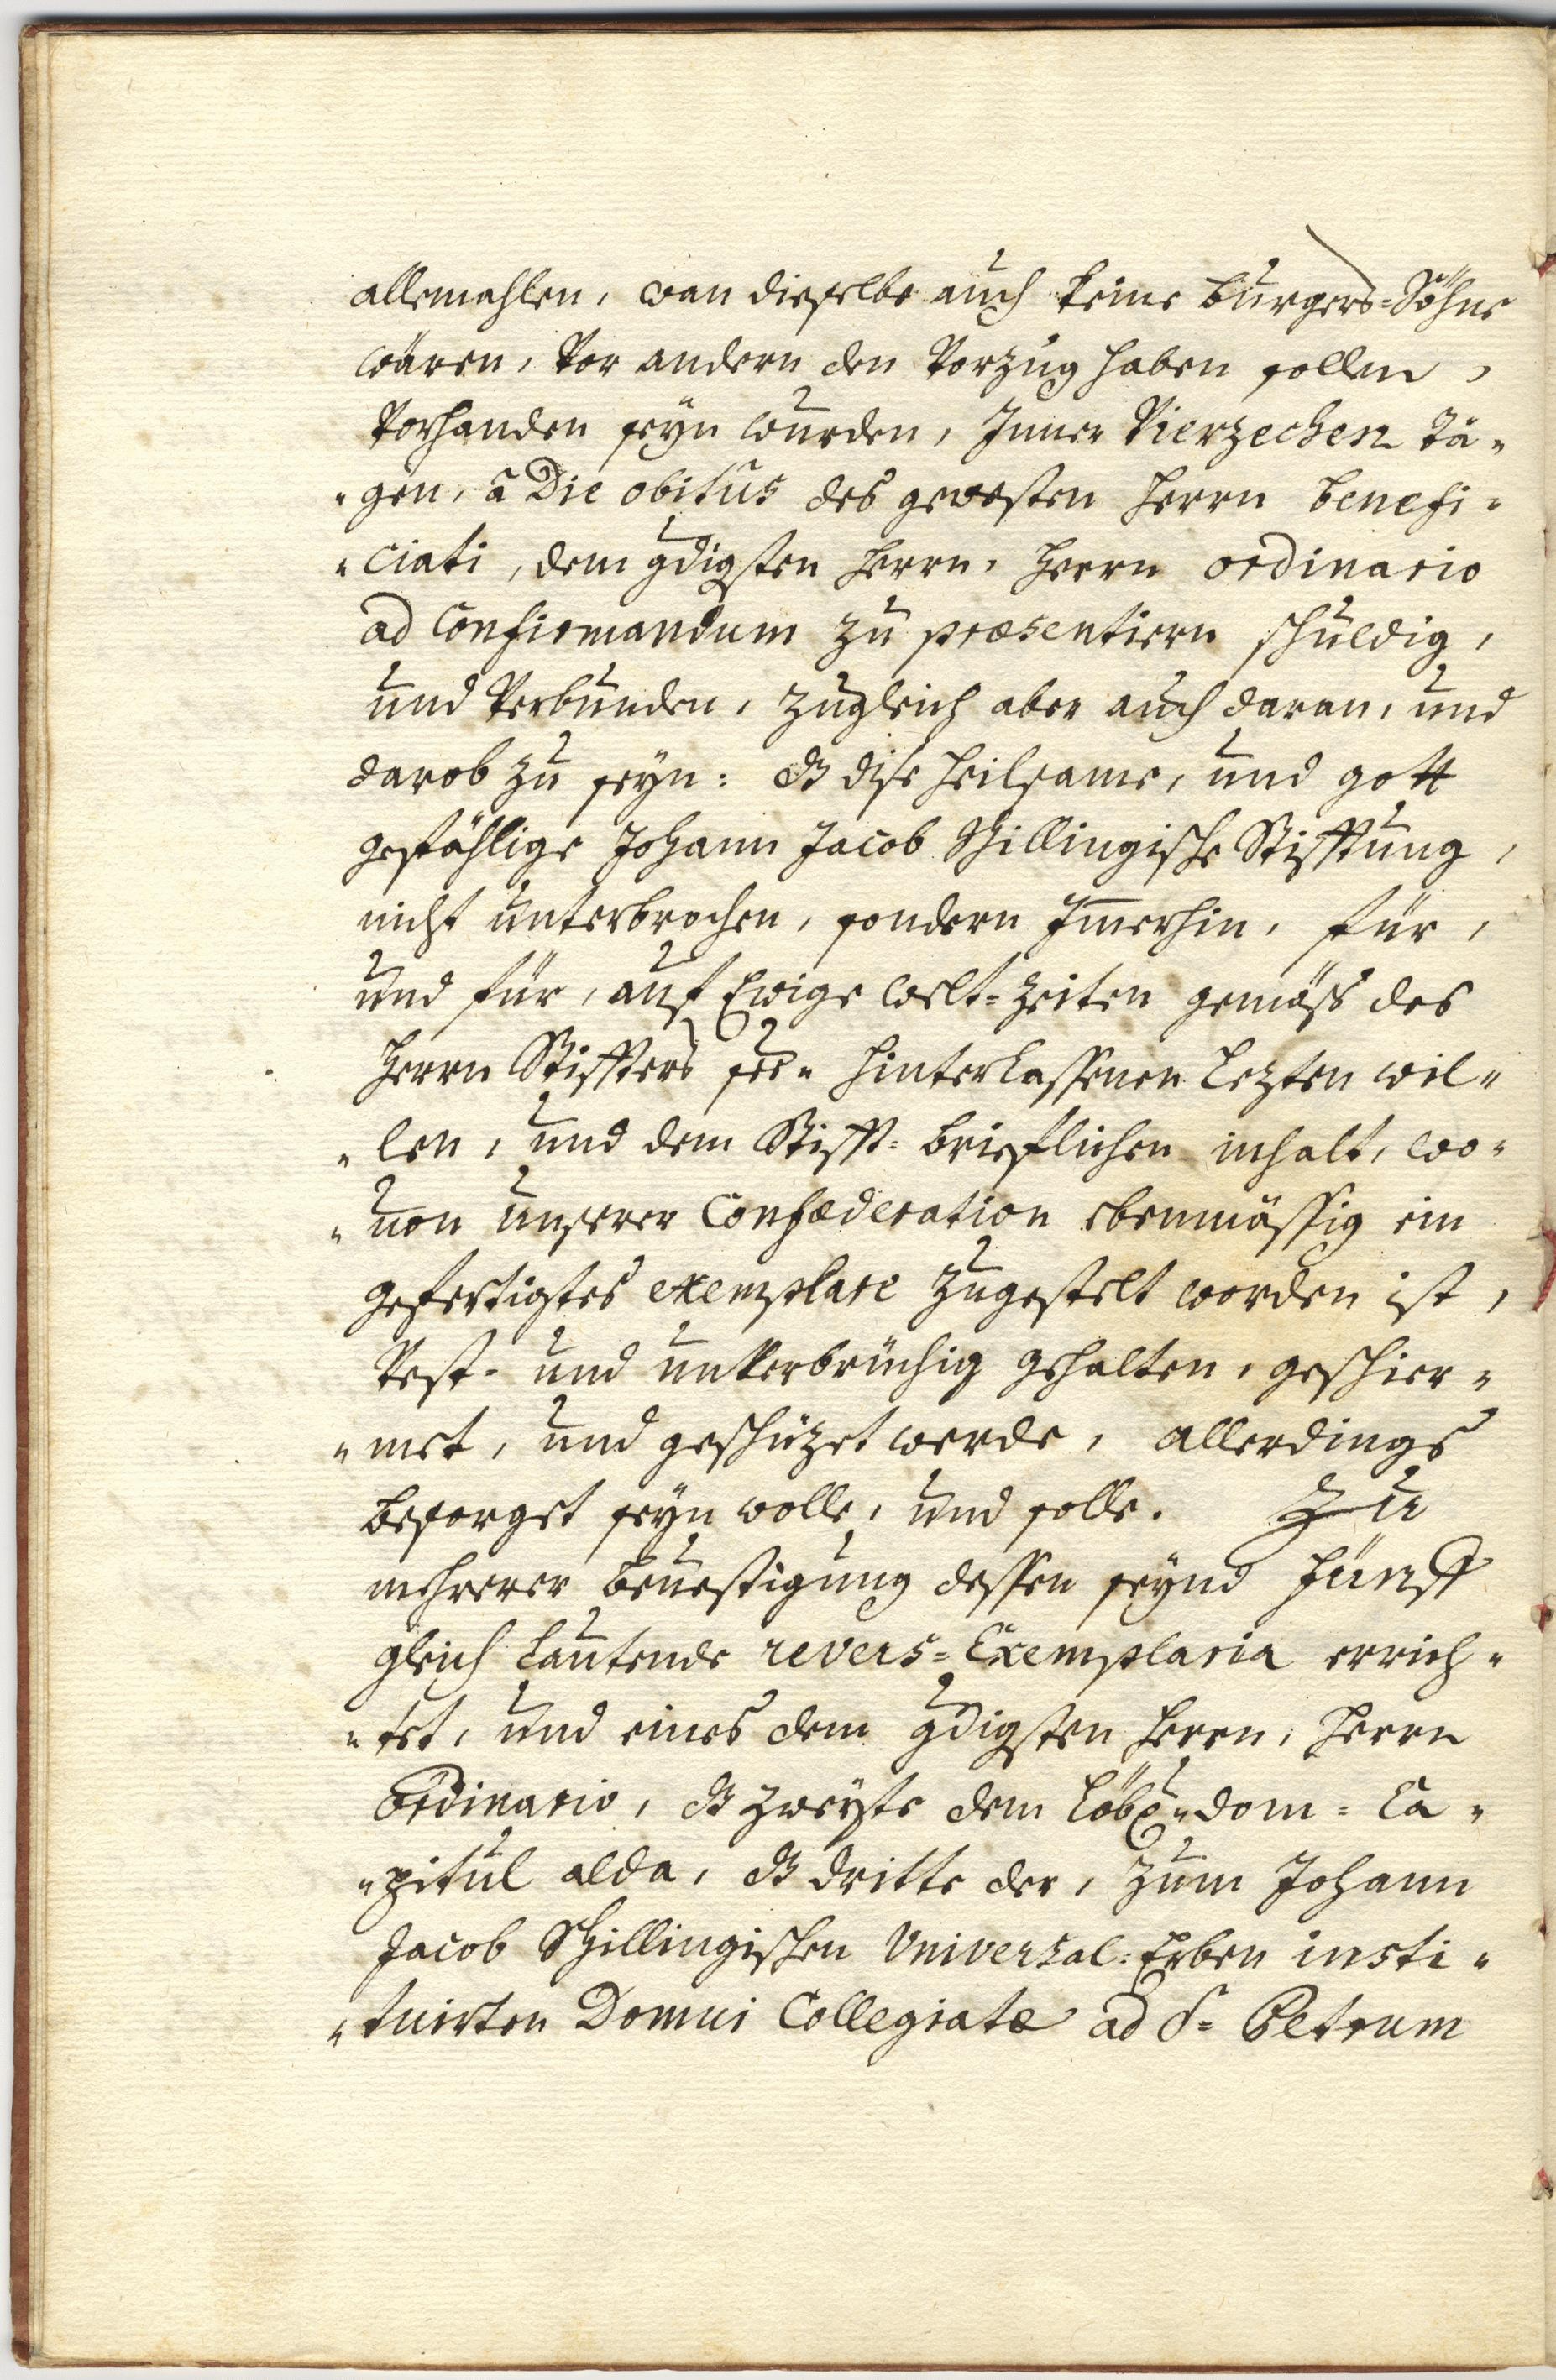 allemahlen, wan dieselbe auch keine burgers=Söhne
wären, Vor andern den Vorzug haben sollen,
Vorhanden seyn wurden, Inner Vierzechen Tä„
„gen, â Die obitus des gewesten Herrn benefi„
„ciati, dem gdigsten Herrn, Herrn ordinario
ad Confirmandum zu præsentiern schuldig,
und Verbunden, zugleich aber auch daran, und
darob zu seyn: dz dise heilsame, und gott
gefählige Johann Jacob Schillingische Stifftung,
nicht unterbrochen, sondern Im̄erhin, für,
und für, auf Ewige welt=zeiten gemäss des
Herrn Stiffters see„ hinterlassenen Lezten wil„
„len, und dem Stifft=brieflichen inhalt, wo„
„uon unserer Confæderation ebenmässig ein
gefertigtes exemplare zugestelt worden ist,
Vest= und unVerbrüchig gehalten, geschier„
„met, und geschüzet werde, allerdings
besorget seyn wolle, und solle. Zu
mehrerer beuestigung dessen seynd fünff
gleich Lautende revers=Exemplaria errich„
„tet, und eines dem gdigsten Herrn, Herrn
Ordinario, dz zweyte dem Löbl„ dom=Ca„
„pitul alda, dz dritte der, zum Johann
Jacob Schillingischen Universal=Erben insti„
„tuirten Domui Collegiatæ ad S= Petrum